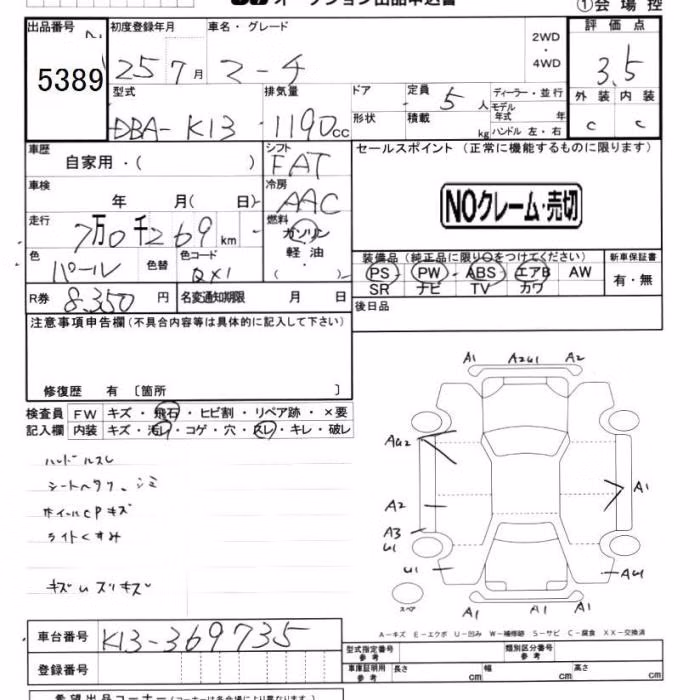 オークション出品申込書
①会場控
出品番号 初度登録年月 車名・グレード 2WD・4WD 評価点
5389 25 7月 マーチ 3.5
型式 排気量 ドア 定員 5人 ディーラー・並行 外装 内装
DBA-K13 1190cc 形状 積載 kg モデル年式 年 ハンドル 左・右 C C
車歴 シフト セールスポイント (正常に機能するものに限ります)
自家用・( ) FAT
車検 冷房 NOクレーム・売切
年 月( 日) AAC
走行 燃料
7万0千269km ガソリン・軽油・( )
色 色替 色コード 装備品 (純正品に限り○をつけてください) 新車保証書
パール QX1 PS・PW・ABS・エアB AW 有・無
SR ナビ TV カワ
R券 8,350円 名変通知期限 月 日 後日品
注意事項申告欄(不具合内容等は具体的に記入して下さい)
修復歴 有 〔箇所 〕
検査員 FW キズ・飛石・ヒビ割・リペア跡・×要
記入欄 内装 キズ・汚レ・コゲ・穴・スレ・キレ・破レ
ハンドルスレ
シートヘタリ、シミ
ホイールCPキズ
ライトくすみ
キズ
A1 A2U1 A2
AU2
A1
A2
A3
U1
U1 AU1
スペア
A1 A1 A1
A-キズ E-エクボ U-凹み W-補修跡 S-サビ C-腐食 XX-交換済
車台番号 K13-369735
型式指定番号 参考 類別区分番号 参考
登録番号 車庫証明用 参考 長さ cm 幅 cm 高さ cm
希望出品コーナー